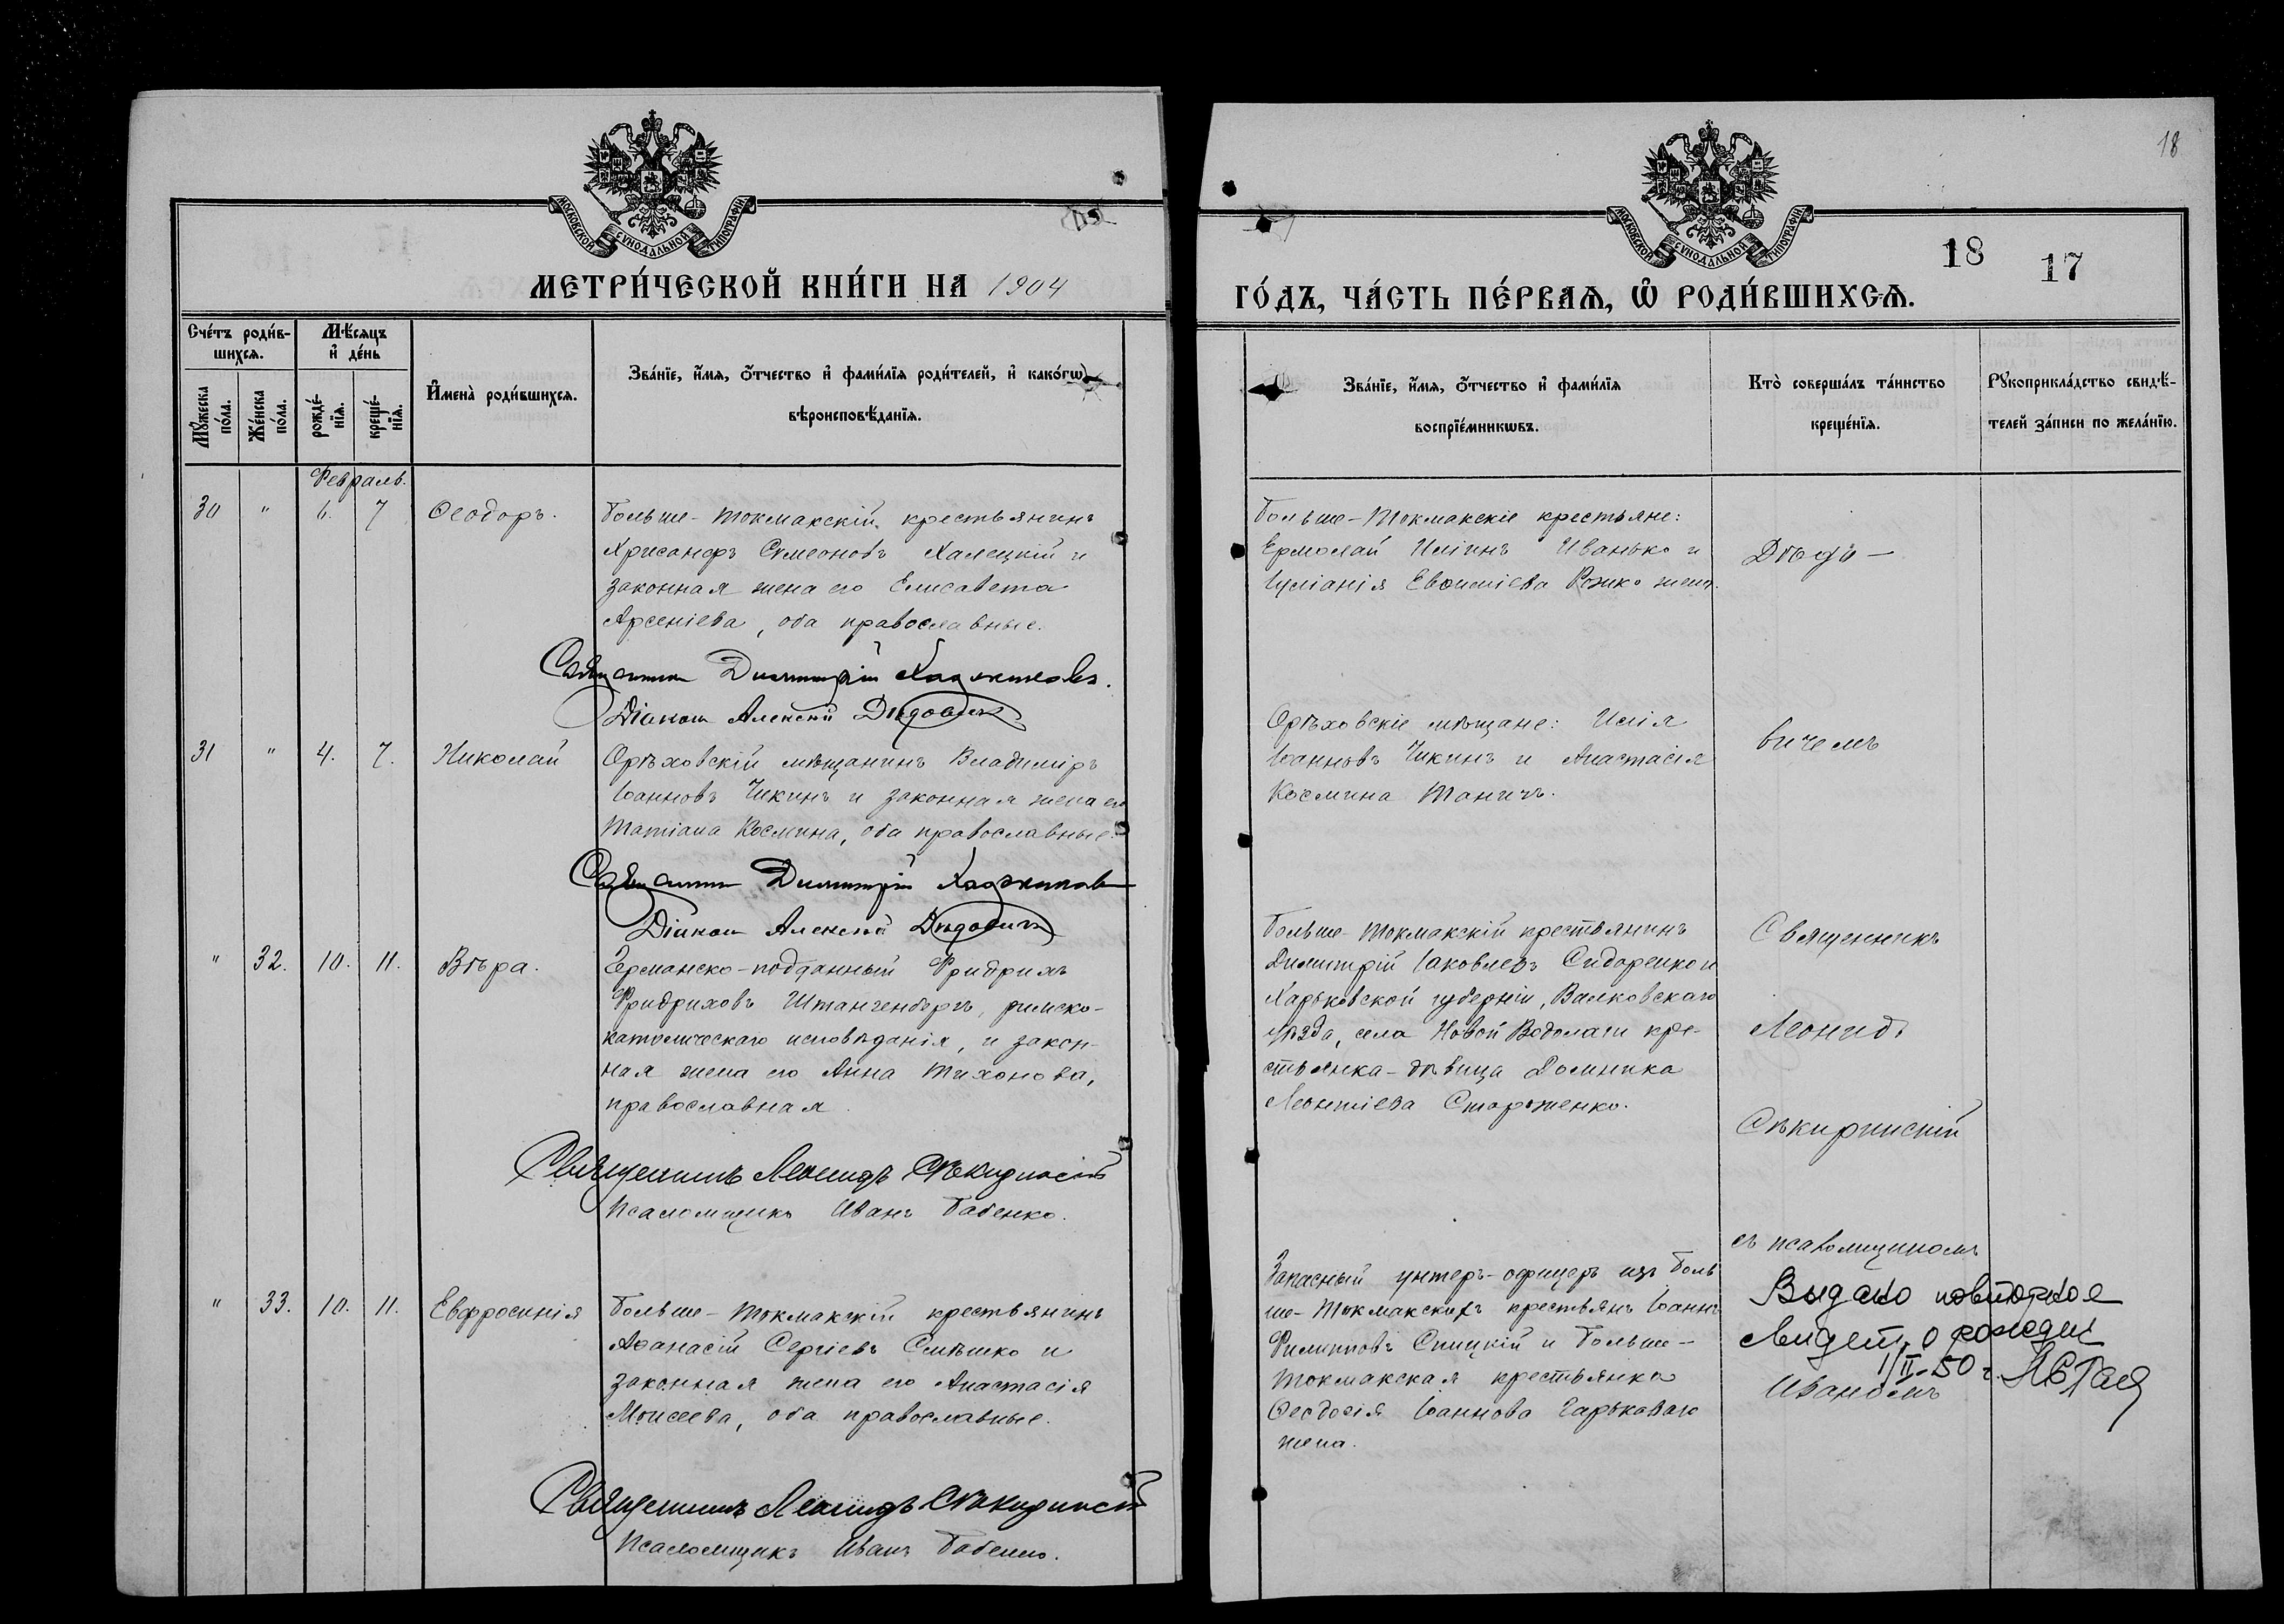 18
МОСКОВСКОЙ СѴНОДАЛЬНОЙ ТИПОГРАФІИ
МОСКОВСКОЙ СѴНОДАЛЬНОЙ ТИПОГРАФІИ
18 17
МЕТРИ́ЧЕСКОЙ КНИ́ГИ НА 1904
ГО́ДЪ, ЧА́СТЬ ПЕ́РВАѦ, Ѿ РОДИ́ВШИХСѦ.
Сче́тъ роди́в-
шихсѧ.
Мѣ́сяцъ
и҆ де́нь
Мꙋ́жеска
по́ла.
Же́нска
по́ла.
рожде́-
нїѧ.
креще́-
нїѧ.
И҆мена̀ роди́вшихсѧ.
Зва́нїе, и҆́мѧ, ѻ҆́тчество и҆ фами́лїѧ роди́телей, и҆ како́гѡ
вѣроисповѣ́данїѧ.
Зва́нїе, и҆́мѧ, ѻ҆́тчество и҆ фами́лїѧ
воспрїе́мникѡвъ.
Кто̀ соверша́лъ та́инство
креще́нїѧ.
Рꙋкоприкла́дство свидѣ́-
телей за́писи по жела́нїю.
Февраль.
30 " 6. 7 Ѳеодоръ.
Больше-Токмакскій крестьянинъ
Хрисанфъ Симеоновъ Халецкій и
законная жена его Елисавета
Арсеніева, оба православные.
Священник Димитрій Хаджиновъ.
Діакон Алексій Дѣдович
Больше-Токмакскіе крестьяне:
Ермолай Иліинъ Иванько и
Іуліанія Евѳиміева Рожко жена.
Дѣдо-
31 " 4. 7. Николай
Орѣховскій мѣщанинъ Владиміръ
Іоанновъ Чикинъ и законная жена его
Татіана Космина, оба православные.
Священник Димитрій Хаджинов
Діакон Алексій Дѣдович
Орѣховскіе мѣщане: Илія
Іоанновъ Чикинъ и Анастасія
Космина Таничъ.
вичемъ
" 32. 10. 11. Вѣра.
Германско-подданный Фридрихъ
Фридриховъ Штангенбергъ, римско-
католическаго исповѣданія, и закон-
ная жена его Анна Тихонова,
православная.
Священникъ Леонидъ Сѣкиринскій
Псаломщикъ Иванъ Бабенко.
Больше-Токмакскій крестьянинъ
Димитрій Іаковлевъ Сидоренко и
Харьковской губерніи, Валковскаго
уѣзда, села Новой Водолаги кре-
стьянка-дѣвица Домника
Леонтіева Стороженко.
Священникъ
Леонидъ
Сѣкиринскій
" 33. 10. 11. Евфросинія
Больше-Токмакскій крестьянинъ
Аѳанасій Сергіевъ Смѣшко и
законная жена его Анастасія
Моисеева, оба православные.
Священникъ Леонидъ Сѣкиринскій
Псаломщикъ Иванъ Бабенко.
Запасный унтеръ-офицеръ изъ Боль
ше-Токмакскихъ крестьянъ Іоаннъ
Филипповъ Спицкій и Больше-
Токмакская крестьянка
Ѳеодосія Іоаннова Гарьковаго
жена.
съ псаломщикомъ
Выдано повторное
свидет. о рожден
1/II-50 г.
Иваномъ